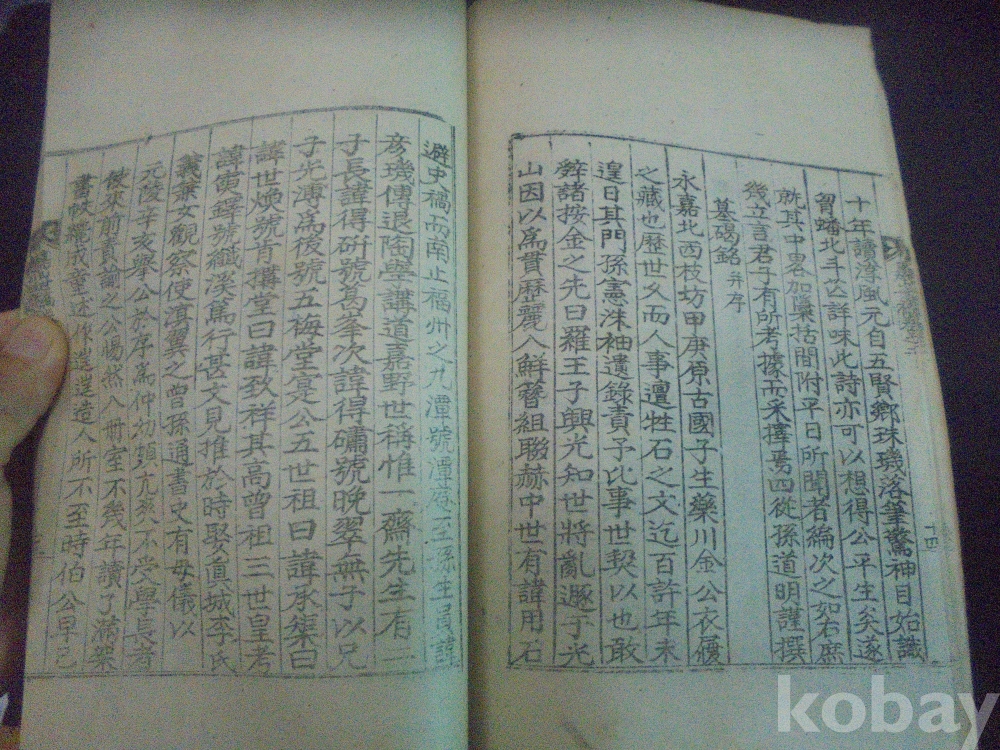 十年讀澄風元自五賢鄉珠璣落筆驚神目始識
蟠北斗芒詳味此詩亦可以想得公平生矣遂
就其中略加櫽括間附平日所聞者編次之如右庶
幾立言君子有所考據而采擇焉四從孫道明謹撰
墓碣銘 幷序
永嘉北西枝坊甲庚原古國子生藥川金公衣履
之藏也歷世久而人事邅牲石之文迄百許年未
遑日其門孫憲洙袖遺錄責予比事世契以也敢
辭諸按金之先曰羅王子興光知世將亂遯于光
山因以爲貫歷麗入鮮簪組聯赫中世有諱用石
避史禍而南止福州之九潭號潭庵至孫生員諱
彦璣傳退陶學講道嘉野世稱惟一齋先生有二
子長諱得硏號葛峯次諱得礵號晩翠無子以兄
子光溥爲後號五梅堂寔公五世祖曰諱承榘曰
諱世煥號肯構堂曰諱致祥其高曾祖三世皇考
諱寅鐸號纖溪篤行甚文見推於時娶眞城李氏
義集女觀察使淇翼之曾孫通書史有母儀以
元陵辛亥擧公於序爲仲幼頗亢爽不受學長者
前責諭之公惕然入冊室不幾年讀了滿架
書帙纔成童述作造人所不至時伯公早已
十四
kobay